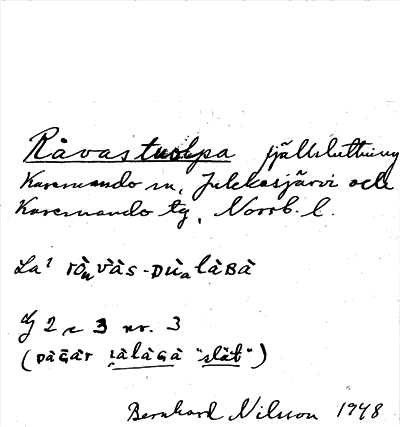 Råvastuolpa fjällsluttning
Karesuando sn, Jukkasjärvi och
Karesuando tg, Norrb. l.
La¹ ròₙvàs-Dùₐlàʙà
J 2 c 3 nr. 3
(ᴅàɢàr làlàɢà "slät")
Bernhard Nilsson 1948